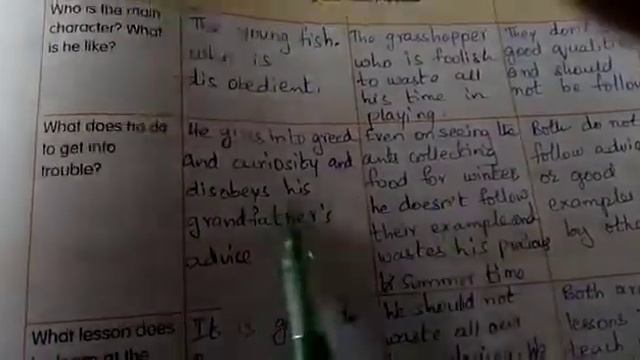 Who is the main
character? What
is he like?
The young fish.
who is
disobedient.
The grasshopper
who is foolish
to waste all
his time in
playing.
They don't
good qualities
and should
not be follow
What does he do
to get into
trouble?
He gives into greed
and curiosity and
disobeys his
grandfather's
advice
Even on seeing the
ants collecting
food for winter
he doesn't follow
their example and
wastes his precious
summer time
Both do not
follow advice
or good
examples
by othe
What lesson does
It is
We should not
waste all our
We
Both are
lessons
teach